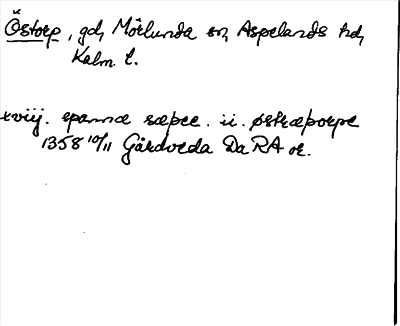 Östorp, gd, Mörlunda sn, Aspelands hd,
Kalm. l.
xviij. spannæ sæþee. ii. østræþorpe
1358 10/11 Gårdveda Da RA or.